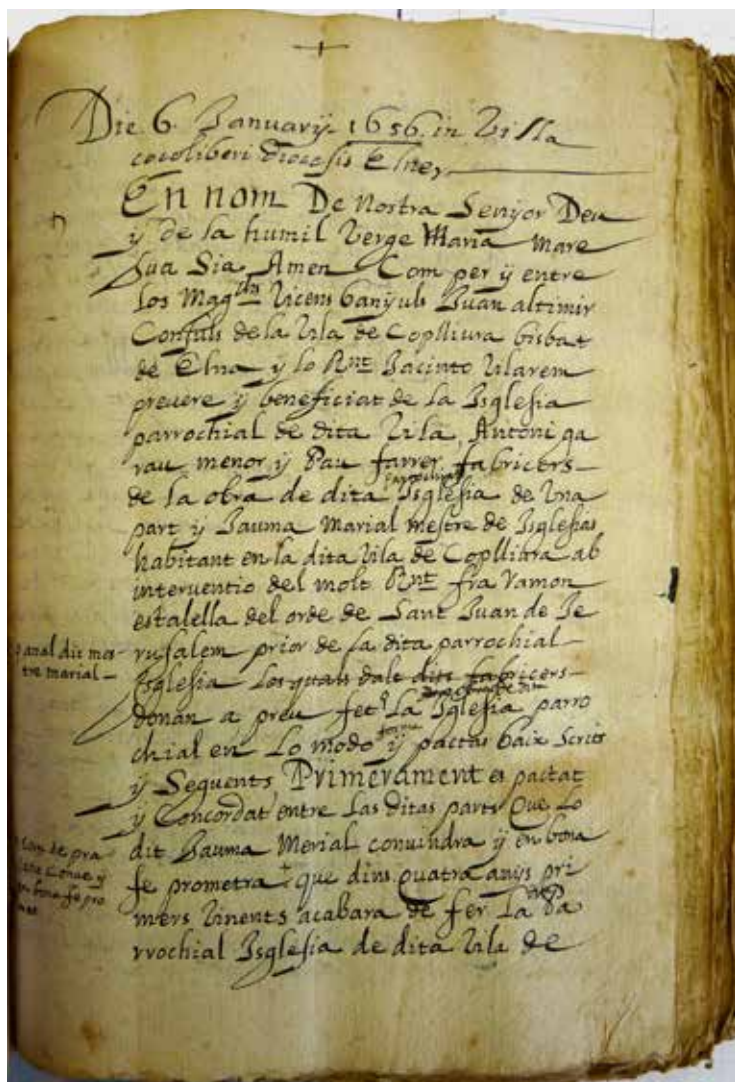 Die 6 Januarÿ 1656 in Villa
cocoliberi diocesis Elnen
En nom De Nostra Senÿor Deu
ÿ de la humil Verge Maria Mare
sua Sia Amen Com per ÿ entre
los Magchs Vicens banÿuls Juan altimir
Consuls de la Vila de Copllıura bisbat
de Elna ÿ lo Rnt Jacinto Vilarem
prevere ÿ beneficiat de la Isglesia
parrochial de dita Vila, Antoni ga
rau menor ÿ Pau farrer fabricers
de la obra de dita parrochial Isglesia de Una
part ÿ Jauma Marial mestre de Isglesias
habitant en la dita Vila de Coplliura ab
interventio del molt Rnt fra Ramon
estalella del orde de Sant Juan de Je
rusalem prior de la dita parrochial
Isglesia los quals dalt dits fabricers
donan a preu fet la Isglesia parro
chial en lo modo forma ÿ pactas baix Scrits
ÿ Seguents Primerament es pactat
ÿ Concordat entre las ditas parts Que lo
dit Jauma Merial convindra ÿ en bona
fe prometra + que dins quatra anÿs pri
mers Vinents acabara de fer la Pa
rrochial Isglesia de dita Vila de
p anal dit mes
tre marial
conve ÿ
en bona fe pro